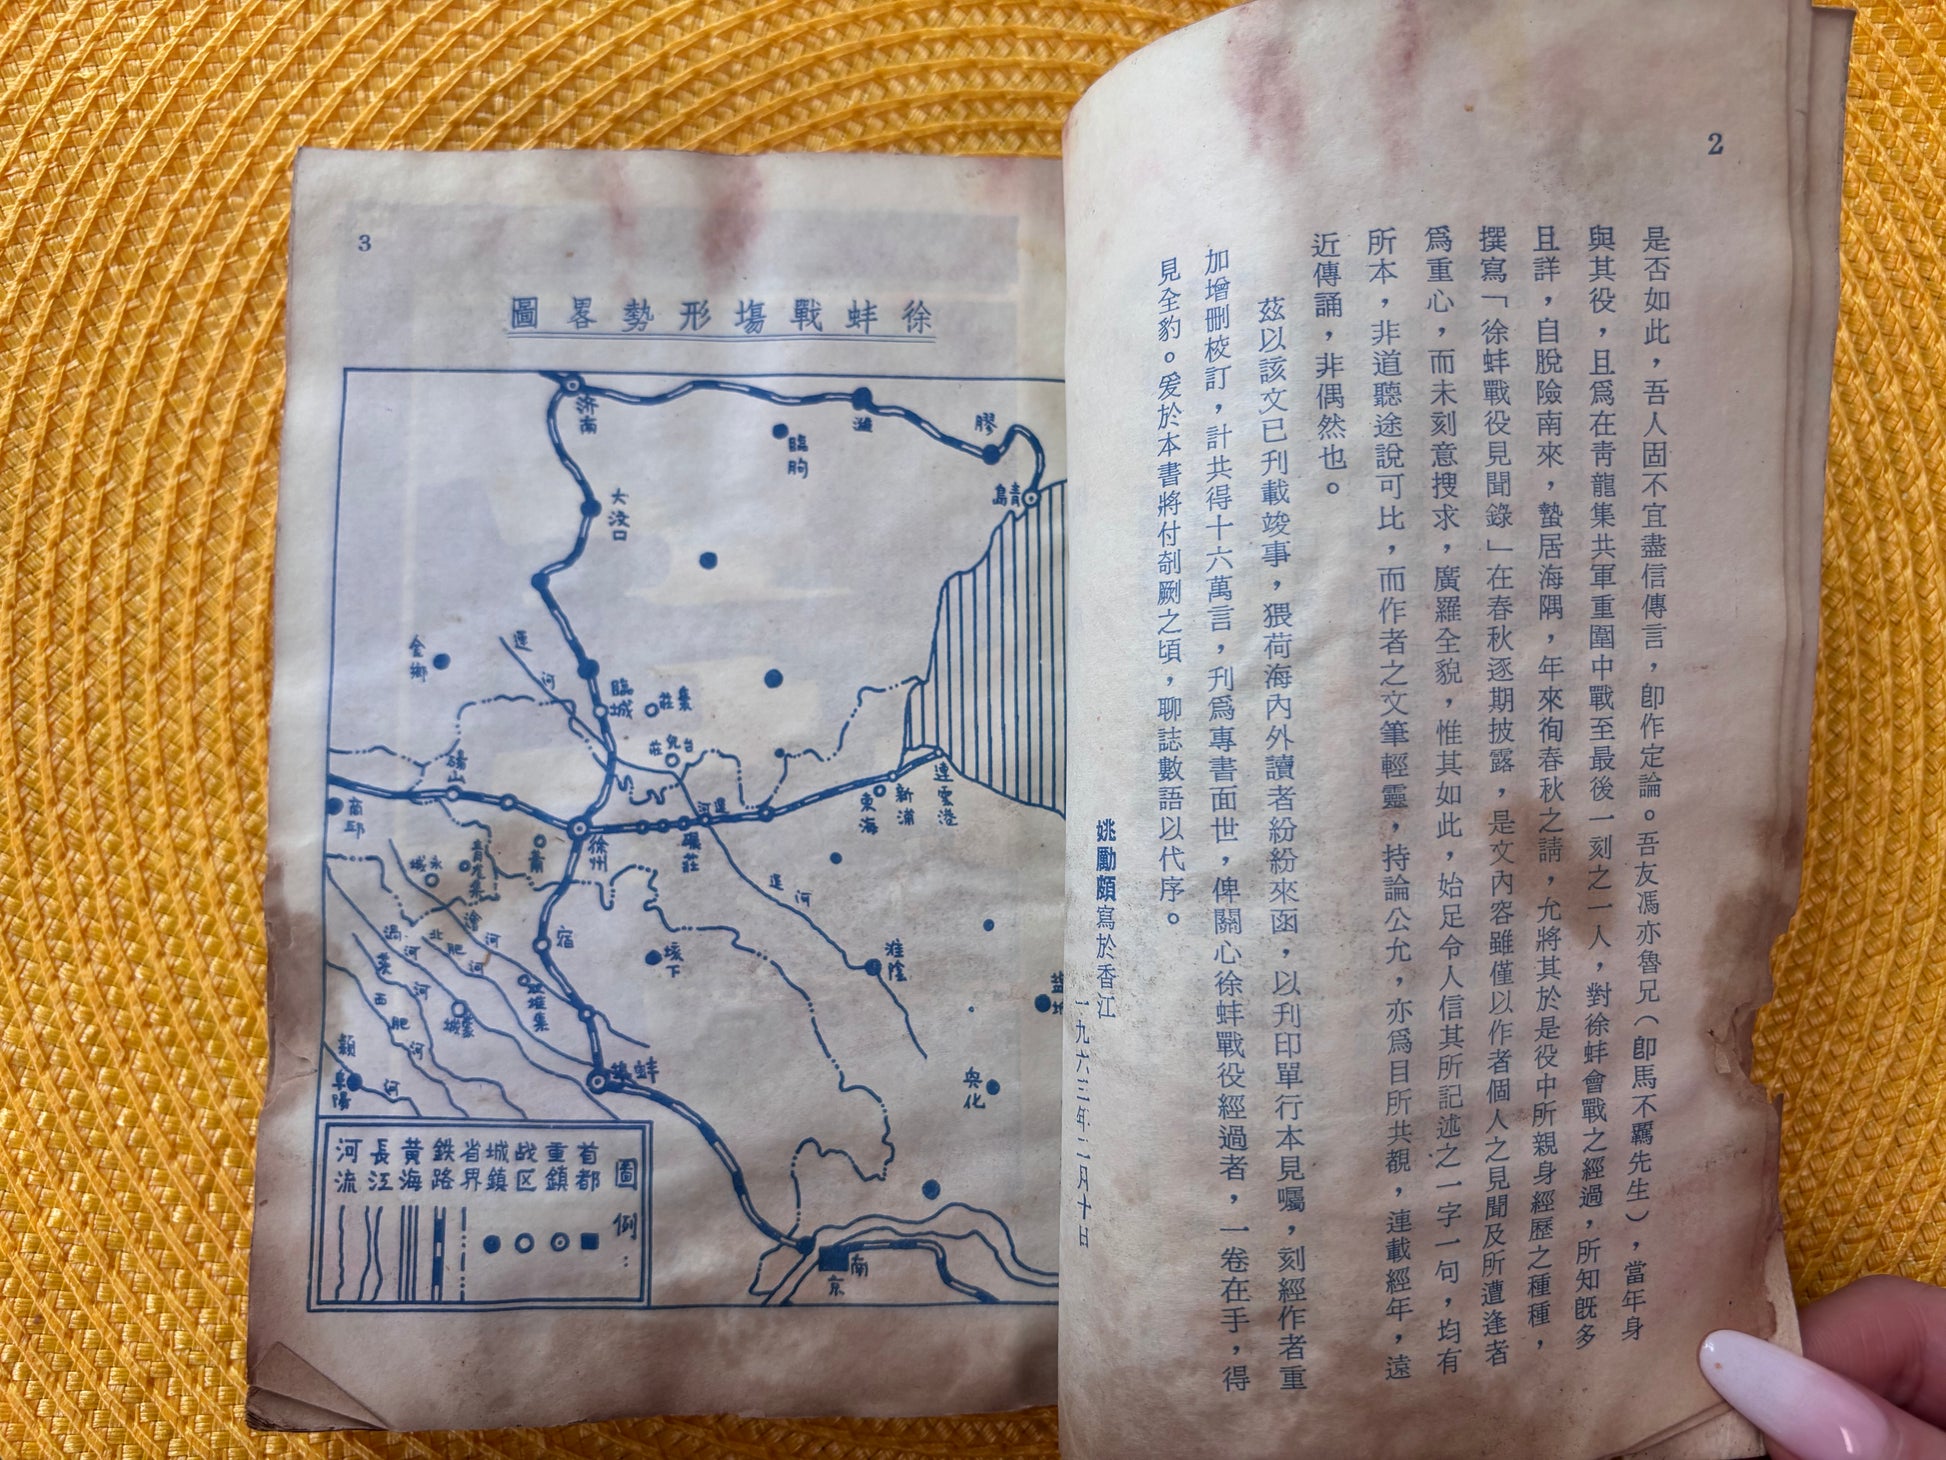 2
是否如此，吾人固不宜盡信傳言，卽作定論。吾友馮亦魯兄（卽馬不羈先生），當年身
與其役，且爲在靑龍集共軍重圍中戰至最後一刻之一人，對徐蚌會戰之經過，所知旣多
且詳，自脫險南來，蟄居海隅，年來徇春秋之請，允將其於是役中所親身經歷之種種，
撰寫「徐蚌戰役見聞錄」在春秋逐期披露，是文內容雖僅以作者個人之見聞及所遭逢者
爲重心，而未刻意搜求，廣羅全貌，惟其如此，始足令人信其所記述之一字一句，均有
所本，非道聽途說可比，而作者之文筆輕靈，持論公允，亦爲目所共覩，連載經年，遠
近傳誦，非偶然也。
茲以該文已刊載竣事，猥荷海內外讀者紛紛來函，以刊印單行本見囑，刻經作者重
加增刪校訂，計共得十六萬言，刊爲專書面世，俾關心徐蚌戰役經過者，一卷在手，得
見全豹。爰於本書將付剞劂之頃，聊誌數語以代序。
姚勵頗寫於香江
一九六三年二月十日
3
徐蚌戰塲形勢畧圖
济南
濰
膠
靑島
臨朐
大汶口
金鄉
運河
臨城
棗莊
台兒莊
碭山
商邱
徐州
運河
碾莊
東海
新浦
連雲港
蕭
永城
青龙集
澮河
渦河
北肥河
宿
垓下
運河
淮陰
鹽城
双堆集
蒙城
茨河
西肥河
潁河
阜陽
蚌埠
興化
南京
圖例：
首都
重鎮
战区
城鎮
省界
鉄路
黃海
長江
河流